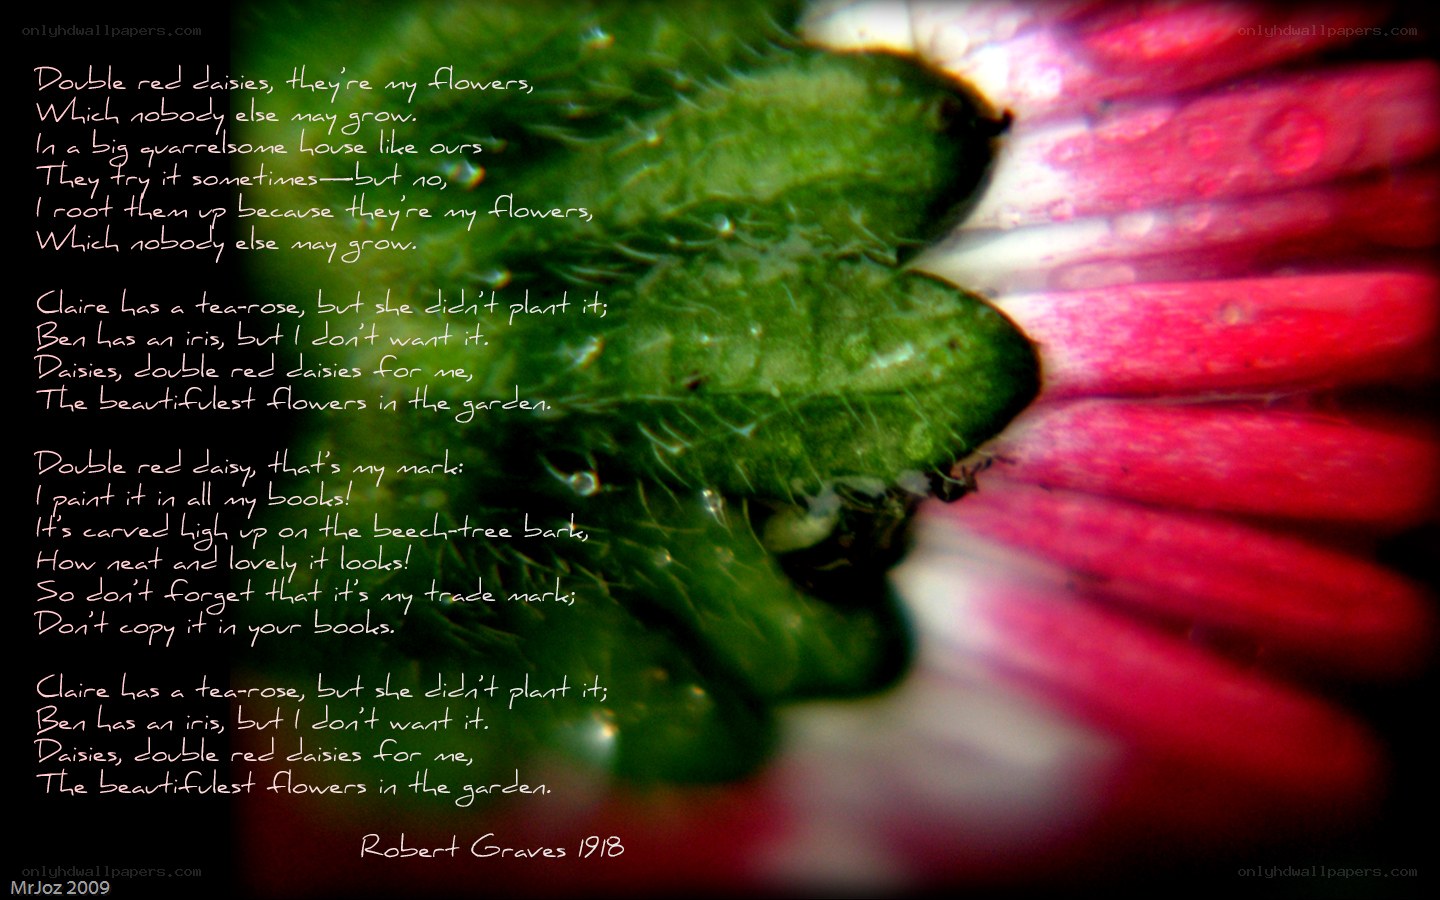 onlyhdwallpapers.com
onlyhdwallpapers.com
Double red daisies, they're my flowers,
Which nobody else may grow.
In a big quarrelsome house like ours
They try it sometimes—but no,
I root them up because they're my flowers,
Which nobody else may grow.
Claire has a tea-rose, but she didn't plant it;
Ben has an iris, but I don't want it.
Daisies, double red daisies for me,
The beautifulest flowers in the garden.
Double red daisy, that's my mark:
I paint it in all my books!
It's carved high up on the beech-tree bark,
How neat and lovely it looks!
So don't forget that it's my trade mark;
Don't copy it in your books.
Claire has a tea-rose, but she didn't plant it;
Ben has an iris, but I don't want it.
Daisies, double red daisies for me,
The beautifulest flowers in the garden.
Robert Graves 1918
onlyhdwallpapers.com
onlyhdwallpapers.com
MrJoz 2009